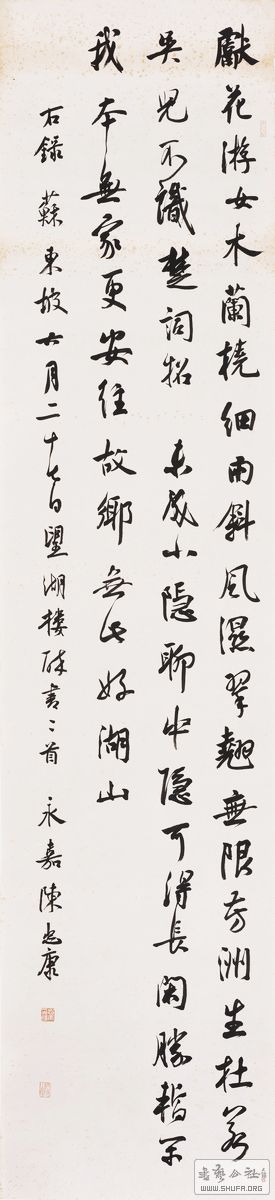 獻花游女木蘭橈細雨斜風濕翠翹無限芳洲生杜若
吳兒不識楚詞招 未成小隱聊中隱可得長閑勝暫閑
我本無家更安往故鄉無此好湖山
右錄 蘇東坡六月二十七日望湖樓醉書二首 永嘉陳忠康
WWW.SHUFA.ORG